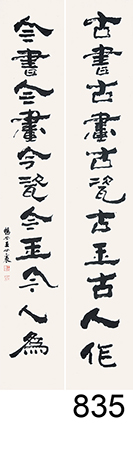 古書古畫古瓷古玉古人作
今書今畫今瓷今玉今人為
835